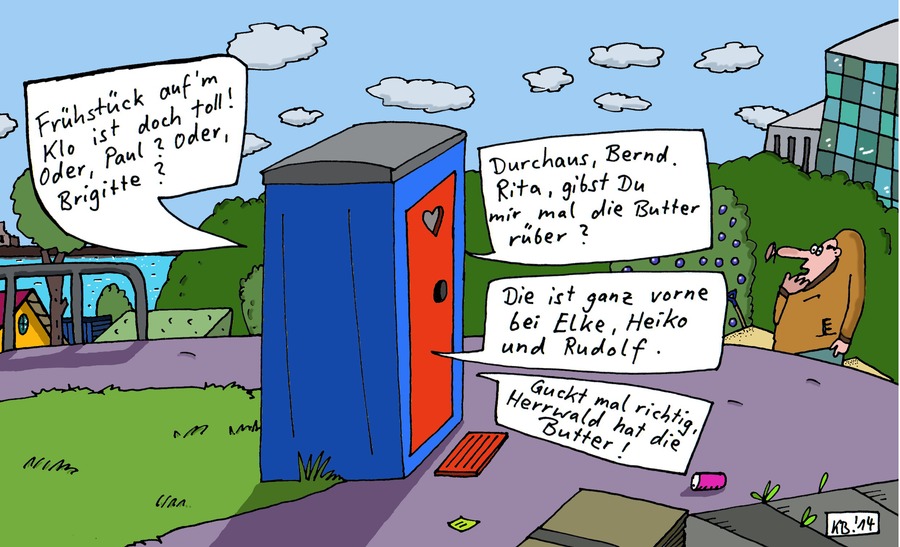 Frühstück auf'm
Klo ist doch toll!
Oder, Paul? Oder,
Brigitte?
Durchaus, Bernd.
Rita, gibst Du
mir mal die Butter
rüber?
Die ist ganz vorne
bei Elke, Heiko
und Rudolf.
Guckt mal richtig,
Herrwald hat die
Butter!
E
KB.'14